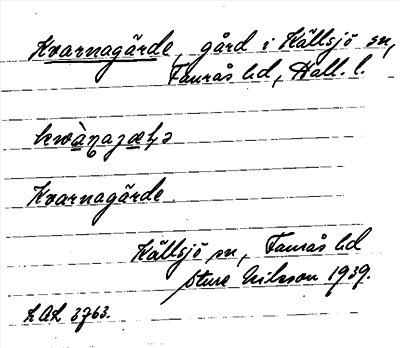 Kvarnagärde, gård i Källsjö sn,
Faurås hd, Hall. l.
Kvarnagärde
Källsjö sn, Faurås hd
Sture Nilsson 1939.
LAL 3763.